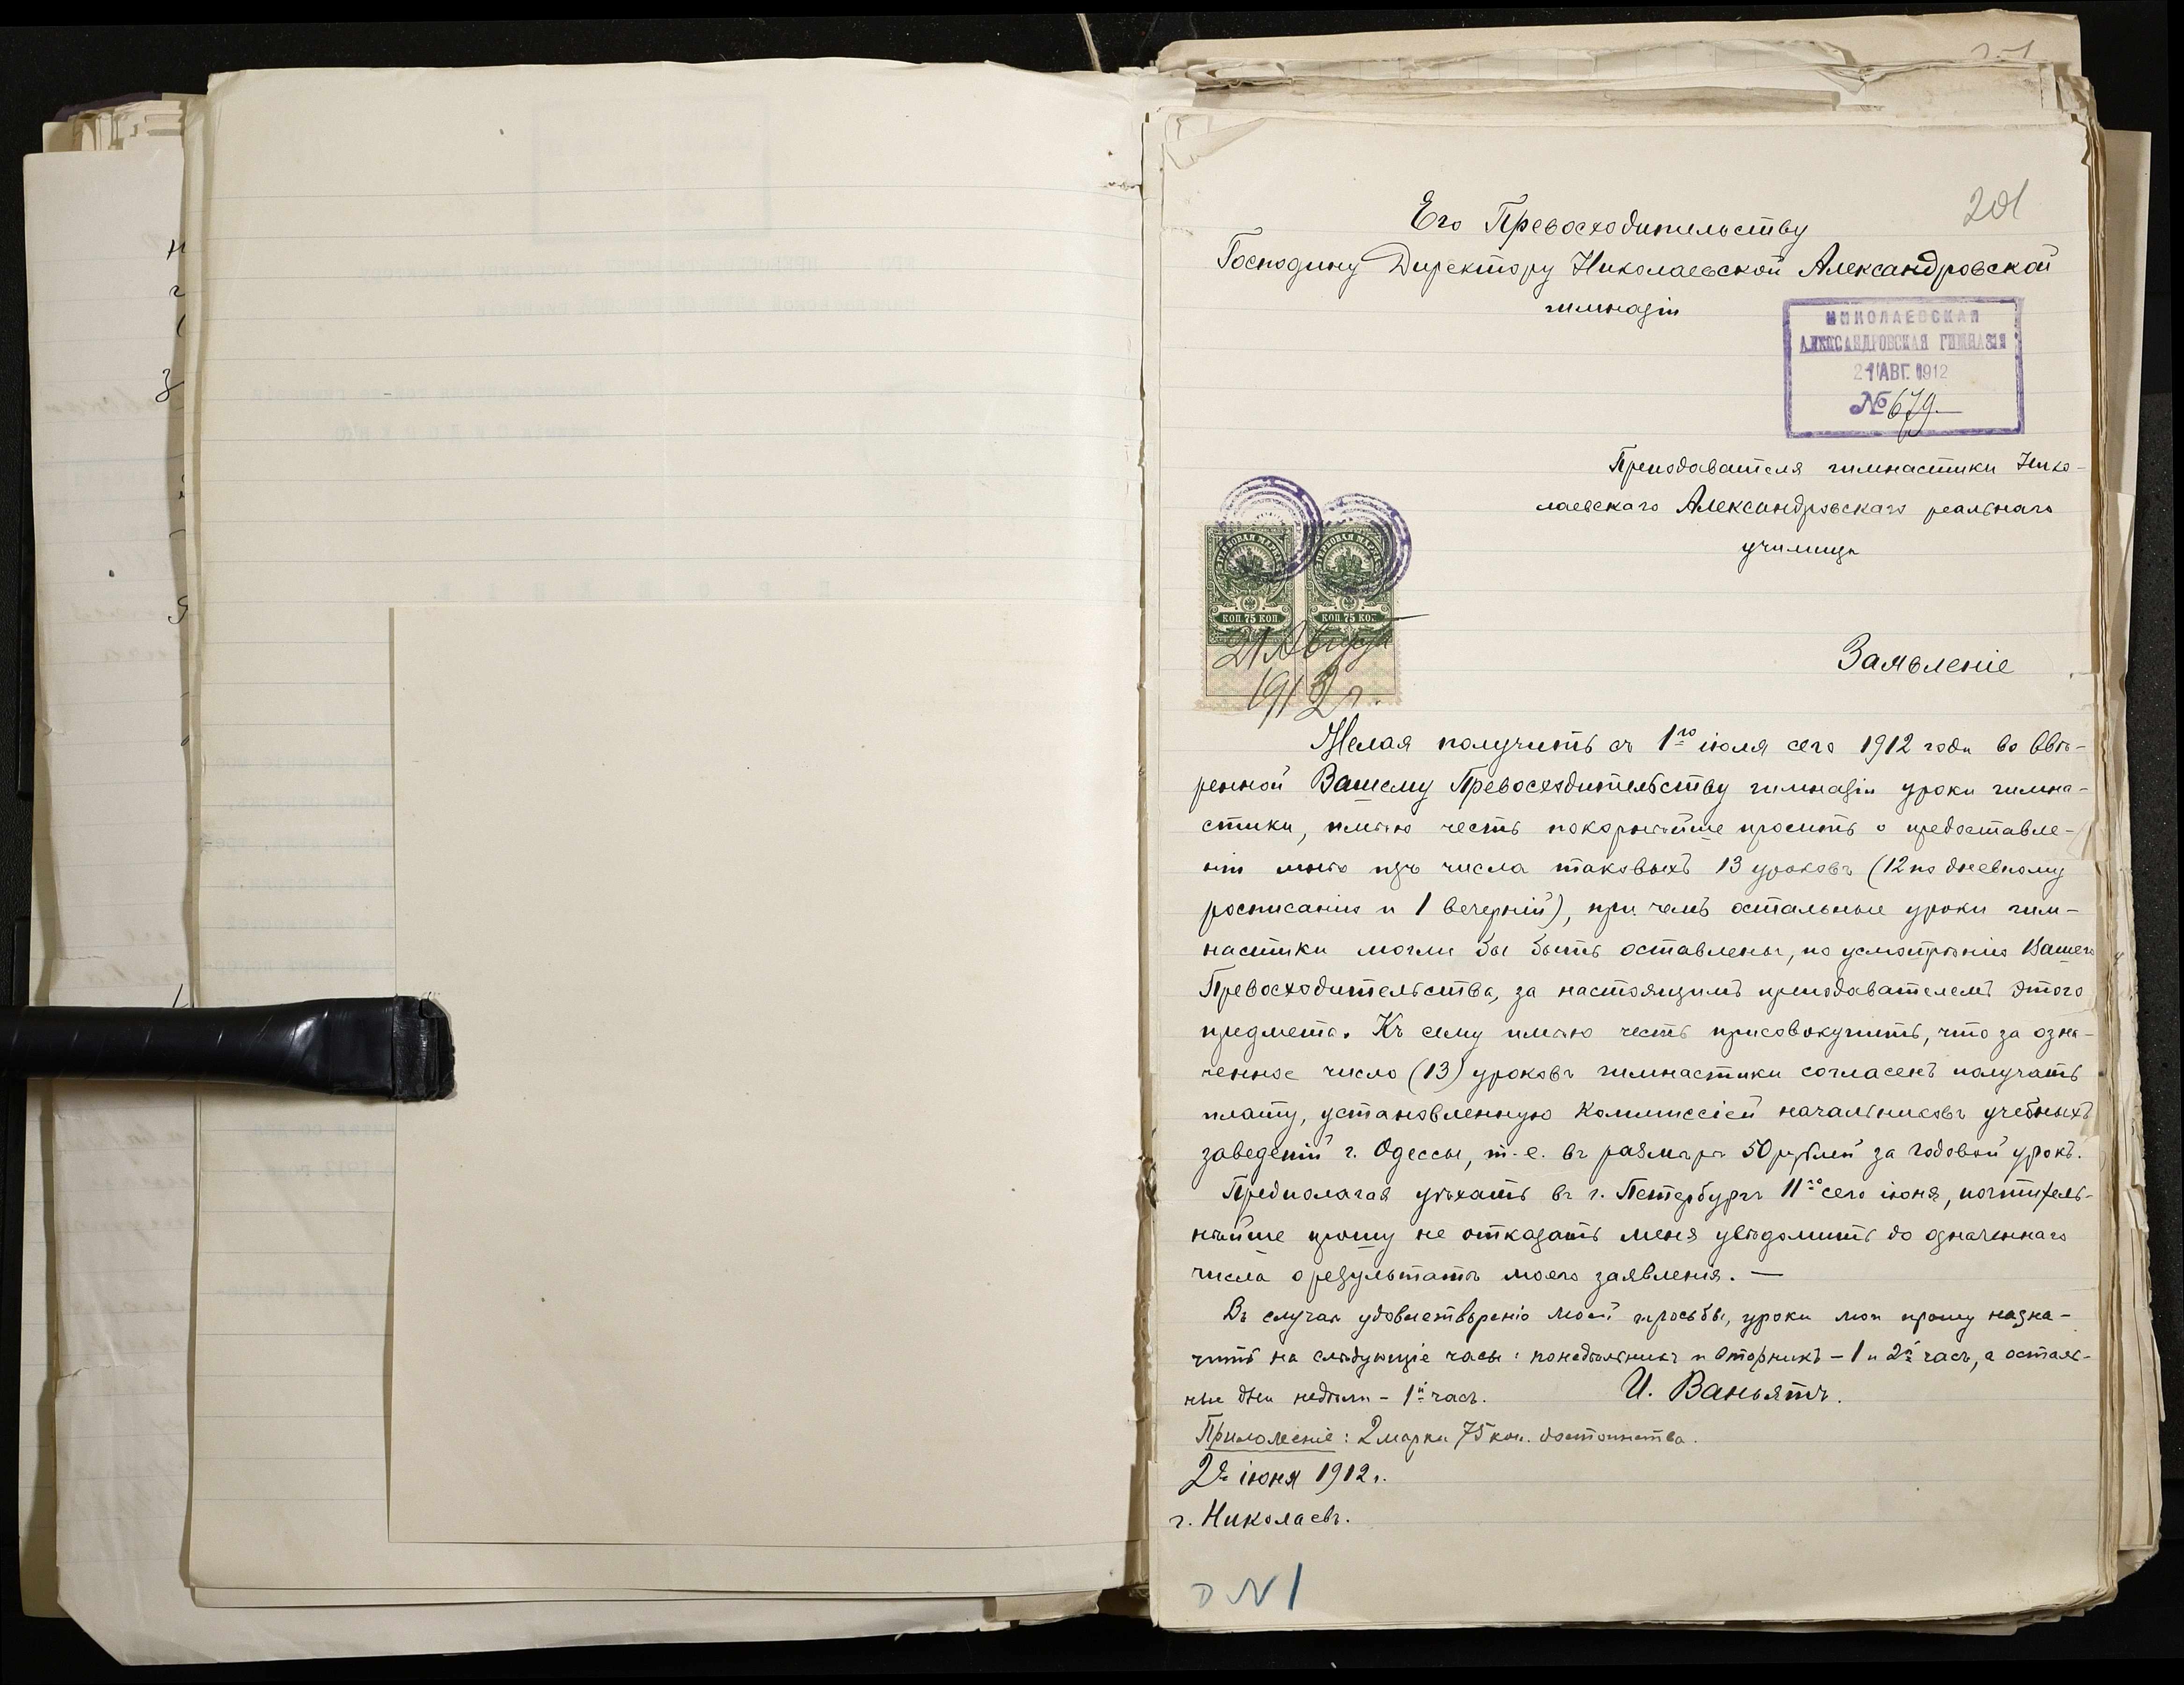 201
Его Превосходительству
Господину Директору Николаевской Александровской
гимназіи
НИКОЛАЕВСКАЯ
АЛЕКСАНДРОВСКАЯ ГИМНАЗІЯ
21 АВГ. 1912
№ 679.
Преподавателя гимнастики Нико-
лаевскаго Александровскаго реальнаго
училища
КОП. 75 КОП.
КОП. 75 КОП.
21 Августа
1912 г.
Заявленіе
Желая получить съ 1го іюля сего 1912 года во ввѣ-
ренной Вашему Превосходительству гимназіи уроки гимна-
стики, имѣю честь покорнѣйше просить о предоставле-
ніи мнѣ изъ числа таковыхъ 13 уроковъ (12 по дневному
росписанію и 1 вечерній), при чемъ остальные уроки гим-
настики могли бы быть оставлены, по усмотрѣнію Вашего
Превосходительства, за настоящимъ преподавателемъ этого
предмета. Къ сему имѣю честь присовокупить, что за озна-
ченное число (13) уроковъ гимнастики согласенъ получать
плату, установленную Коммиссіей начальниковъ учебныхъ
заведеній г. Одессы, т.-е. въ размѣрѣ 50 рублей за годовой урокъ.
Предполагая уѣхать въ г. Петербургъ 11го сего іюня, почтитель-
нѣйше прошу не отказать меня увѣдомить до означеннаго
числа о результатѣ моего заявленія. —
Въ случаѣ удовлетворенія моей просьбы, уроки мои прошу назна-
чить на слѣдующіе часы: понедѣльникъ и вторникъ – 1 и 2й часъ, а осталь-
ные дни недѣли – 1й часъ. И. Ваньятъ.
Приложеніе: 2 марки 75 коп. достоинства.
2го іюня 1912 г.
г. Николаевъ.
№ 1